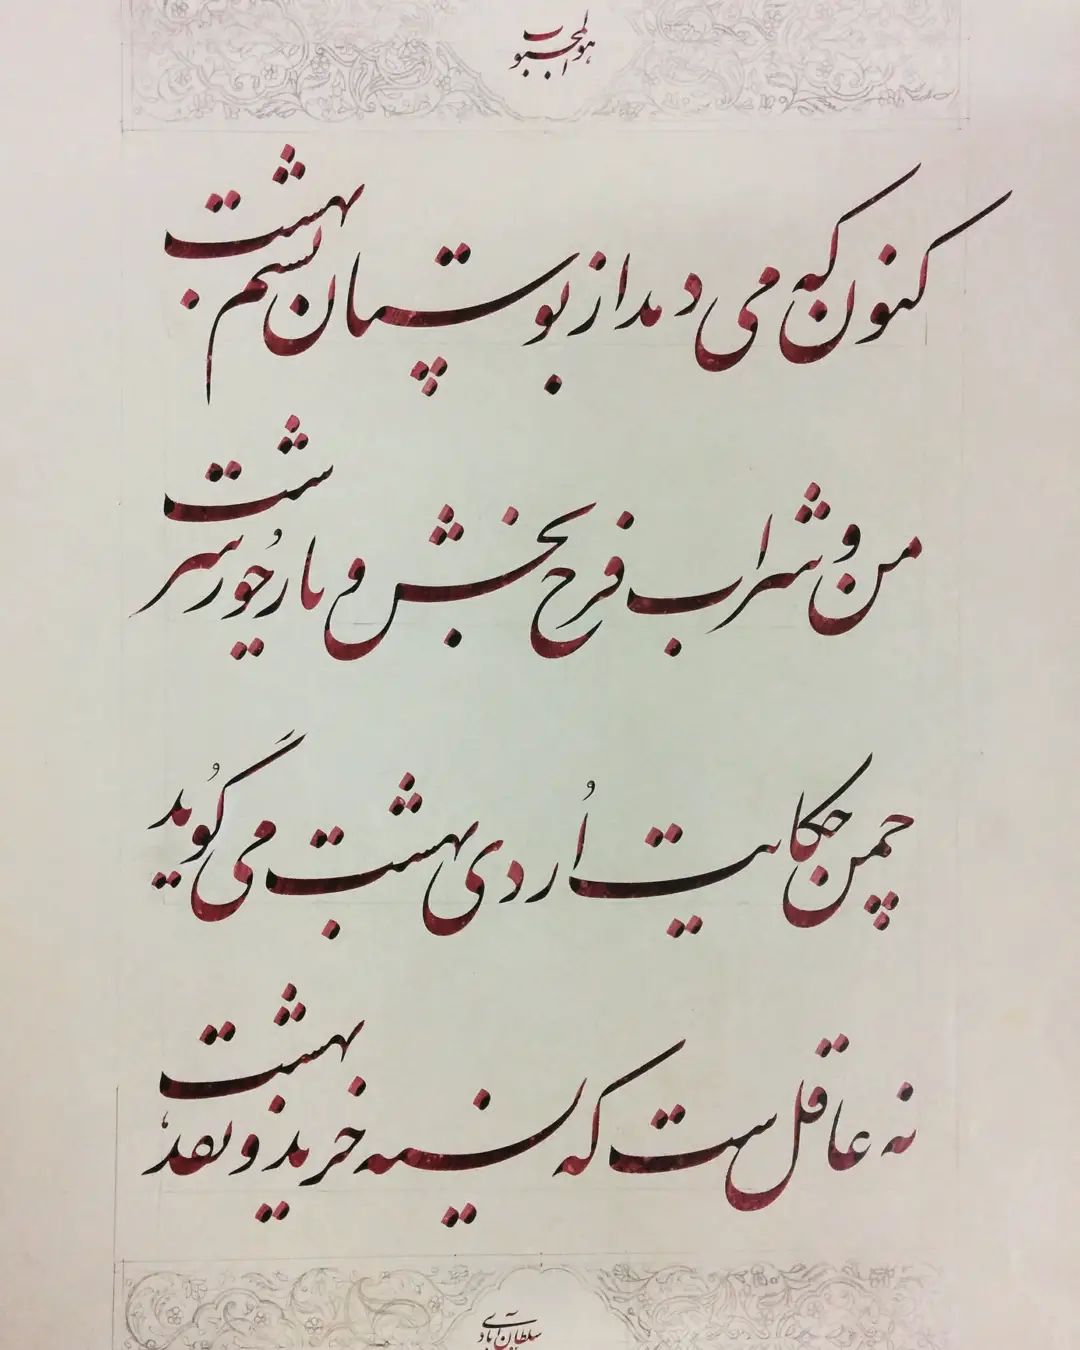 هوالمحبوب
کنون که می دمد از بوستان نسیم بهشت
من و شراب فرح بخش و یار حور سرشت
چمن حکایت اُردی بهشت می گوید
نه عاقل ست که نسیه خرید و نقد بهشت
سلطان آبادی